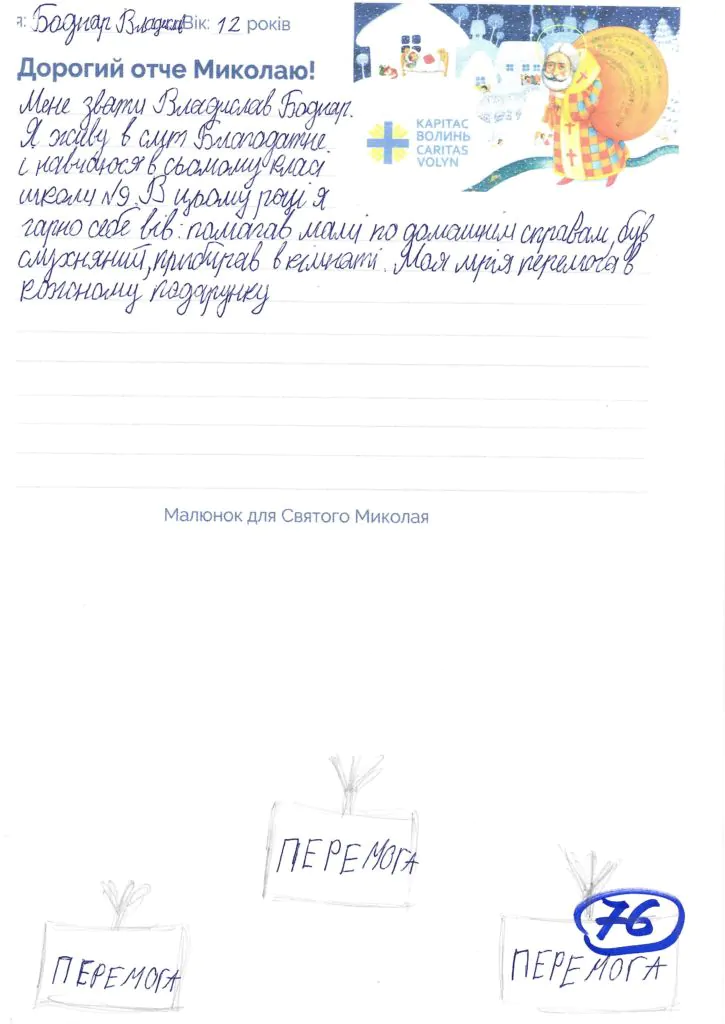 я: Боднар Владислав Вік: 12 років
Дорогий отче Миколаю!
Мене звати Владислав Боднар.
Я живу в смт Благодатне.
і навчаюся в сьомому класі
школи №9. В цьому році я
гарно себе вів: помагав мамі по домашнім справам, був
слухняний, прибирав в кімнаті. Моя мрія перемога в
кожному подарунку
КАРІТАС
ВОЛИНЬ
CARITAS
VOLYN
Малюнок для Святого Миколая
ПЕРЕМОГА
ПЕРЕМОГА
ПЕРЕМОГА
76